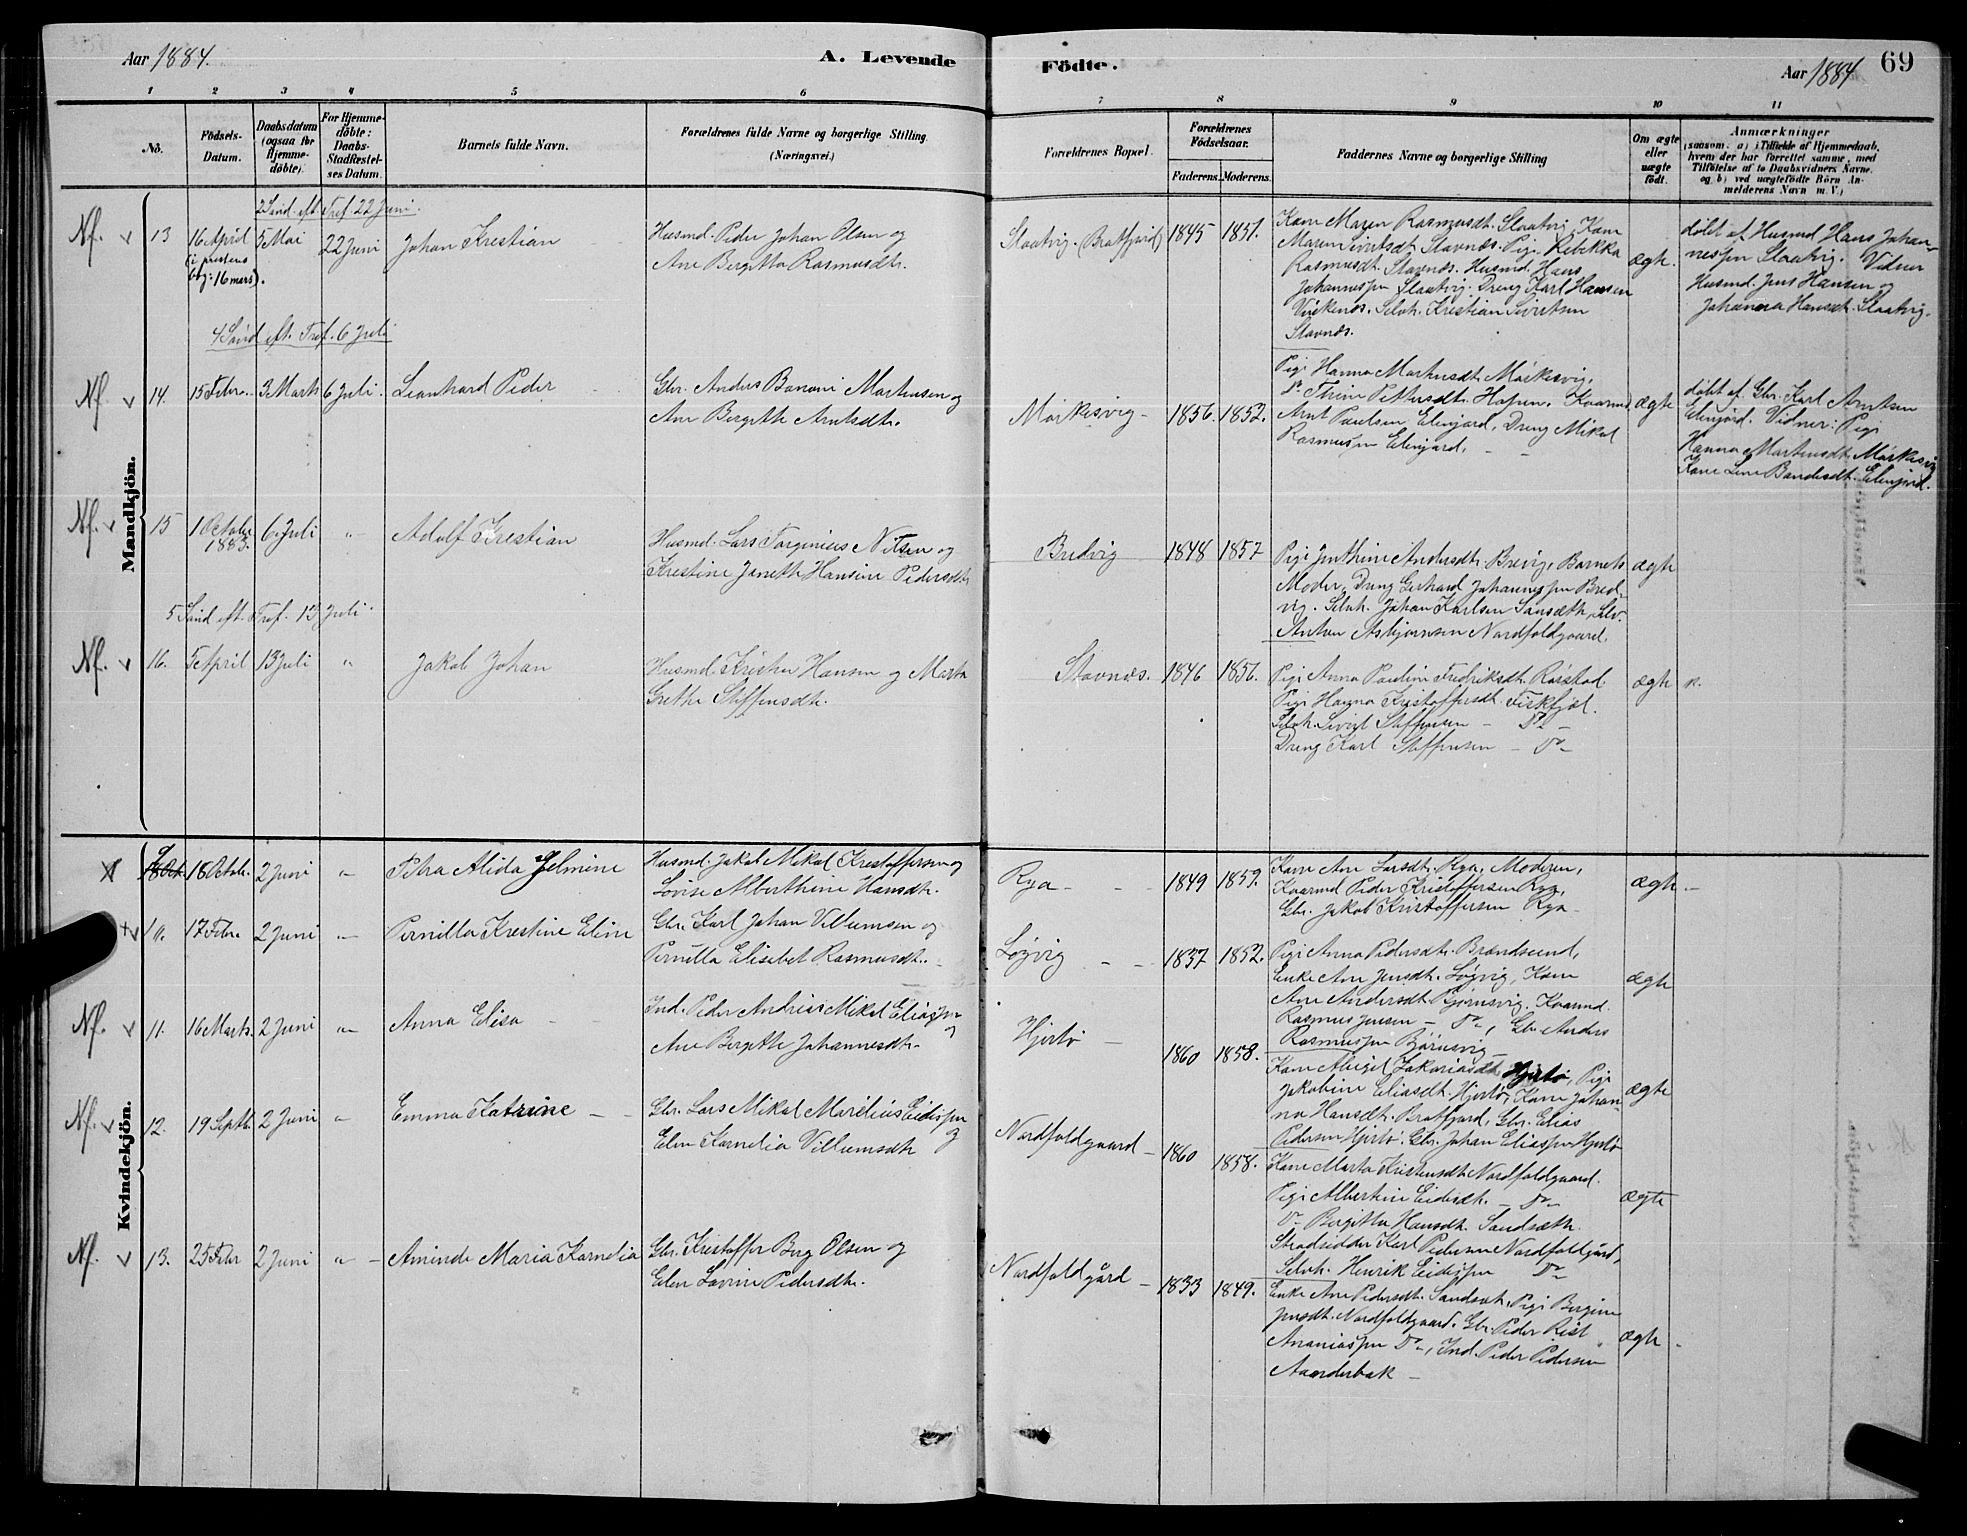 Aar 1884.
A. Levende
Födte.
Aar 1884
69
1 2 3 4 5 6 7 8 9 10 11
No.
Födsels-
Datum.
Daabsdatum
(ogsaa for
Hjemme-
döbte).
For Hjemme-
döbte:
Daabs-
Stadfæstel-
ses Datum.
Barnets fulde Navn.
Forældrenes fulde Navne og borgerlige Stilling
(Næringsvei.)
Forældrenes Bopæl.
Forældrenes
Födselsaar.
Faderens. Moderens.
Faddernes Navne og borgerlige Stilling
Om ægte
eller
uægte
födt.
Anmærkninger
(saasom: a) i Tilfælde af Hjemmedaab,
hvem der har forrettet samme, med
Tilföielse af to Daabsvidners Navne,
og b) ved uægtefödte Börn An-
melderens Navn m. V.)
Mandkjön.
2 Sönd. eft. Tref. 22 Juni.
Nf. 13 16 April 5 Mai 22 Juni Johan Kristian
(i prestens
bog: 16 mars).
Husmd. Peder Johan Olsen og
Ane Bergitta Rasmusdtr.
Slaatvig (Bratfjord) 1845 1851.
Kone Maren Rasmusdt. Slaatvig, Kone
Maren Sivertsdt. Stavnæs. Pige Rebekka
Rasmusdt. Stavnæs. Husmd. Hans
Johannessen Slaatvig. Dreng Karl Hansen
Selvh. Kristian Sivertsen
Stavnæs.
ægte.
döbt af Husmd. Hans Johan-
nessen Slaatvig. Vidner
Husmd. Jens Hansen og
Johanna Hansdt. Slaatvig.
4 Sönd. eft. Tref. 6 Juli
Nf. 14. 15 Febr. 3 Marts 6 Juli. Leonhard Peder
Gbr. Anders Banoni Martinsen og
Ane Bergitte Arntsdtr.
Mörkesvig 1856. 1852.
Pige Hanna Martinsdt. Mörkesvig,
Do Trine Pettersdt. Kaarmd.
Arnt Paulsen Elenjord, Dreng Mikal
Rasmussen Elenjord.
ægte
döbt af Gbr. Karl Arntsen
Elenjord. Vidner: Pige
Hanna Martinsdt. Mörkesvig
Kone Lene Elenjord.
Nf. 15 1 October 6. Juli " Adolf Kristian
1883.
Husmd. Lars Torginius Nilsen og
Kristine Janette Hansine Pedersdt.
Bredvig 1848 1857
Pige Andersdt. Brevig, Barnets
Moder, Dreng Gerhard Johannessen Bred-
vig. Selvh. Johan Karlsen Sandsæth, Selv.
Anton Asbjørnsen Nordfoldgaard.
ægte
5 Sönd. eft. Tref. 13 Juli.
Nf. 16. 5 April 13 Juli " Jakob Johan
Husmd. Hansen og Marta
Grethe Steffensdt.
Stavnæs. 1846 1856.
Pige Anna Pauline Fredriksdt. Rörstad
Pige Hanna Kristoffersdt. Fiskfjol.
Selvh. Sivert Steffensen – Do –
Dreng Karl Steffensen – Do –
ægte
Kvindekjön.
9 18 Octbr. 2 Juni " Petra Alida Hjelmine
Husmd. Jakob Mikal Kristoffersen og
Lovise Alberthine Hansdt.
Rya 1849 1859.
Kone Ane Larsdt. Rya, Moderen,
Kaarmd. Peder Kristoffersen Rya,
Gbr. Jakob Kristoffersen Rya
ægte
10. 17 Febr. 2 Juni " Pernilla Krestine Eline
Gbr. Karl Johan Villumsen og
Pernilla Elisebet Rasmusdt.
Løgvig 1837 1852.
Pige Anna Pedersdt. Brændsund,
Enke Ane Jensdt. Løgvig, Kone
Ane Andersdt. Bjørnsvig, Kaarmd.
Rasmus Jensen – Do –, Gbr. Anders
Rasmussen Björnsvig
ægte
Nf. 11. 16 Marts. 2 Juni " Anna Elisa
Ind. Peder Andreas Mikal Eliassen
og
Ane Bergitte Johannesdt.
Hjertø 1860 1858.
Kone Abigel Zakariasdt. Hjertø, Pige
Jakobine Eliasdt. Hjertø, Kone Johan-
na Hansdt. Bratfjord, Gbr. Elias
Pedersen Hjertø. Gbr. Johan Eliassen Hjertø
ægte
Nf. 12. 19 Septb. 2 Juni " Emma Katrine
Gbr. Lars Mikal Marelius Eidissen
og
Elen Karnelia Villumsdt.
Nordfoldgaard 1860 1858.
Kone Marta Kristensdt. Nordfoldgaard.
Pige Albertine Eidisdt. – Do –
Do Bergitta Hansdt. Sandsæth.
Strandsidder Karl Pedersen Nordfoldgård,
Selvh. Henrik Eidissen Do
ægte
Nf. 13. 25 Febr 2 Juni " Aminde Maria Karnelia
Gbr. Kristoffer Berg Olsen og
Elen Lovine Pedersdt.
Nordfoldgård 1833 1849.
Enke Ane Pedersdt. Sandsæt, Pige Bergine
Jensdt. Nordfoldgaard. Gbr. Peder Rist
Ananiassen Do –, Ind. Peder Pedersen
Aanderbak
ægte